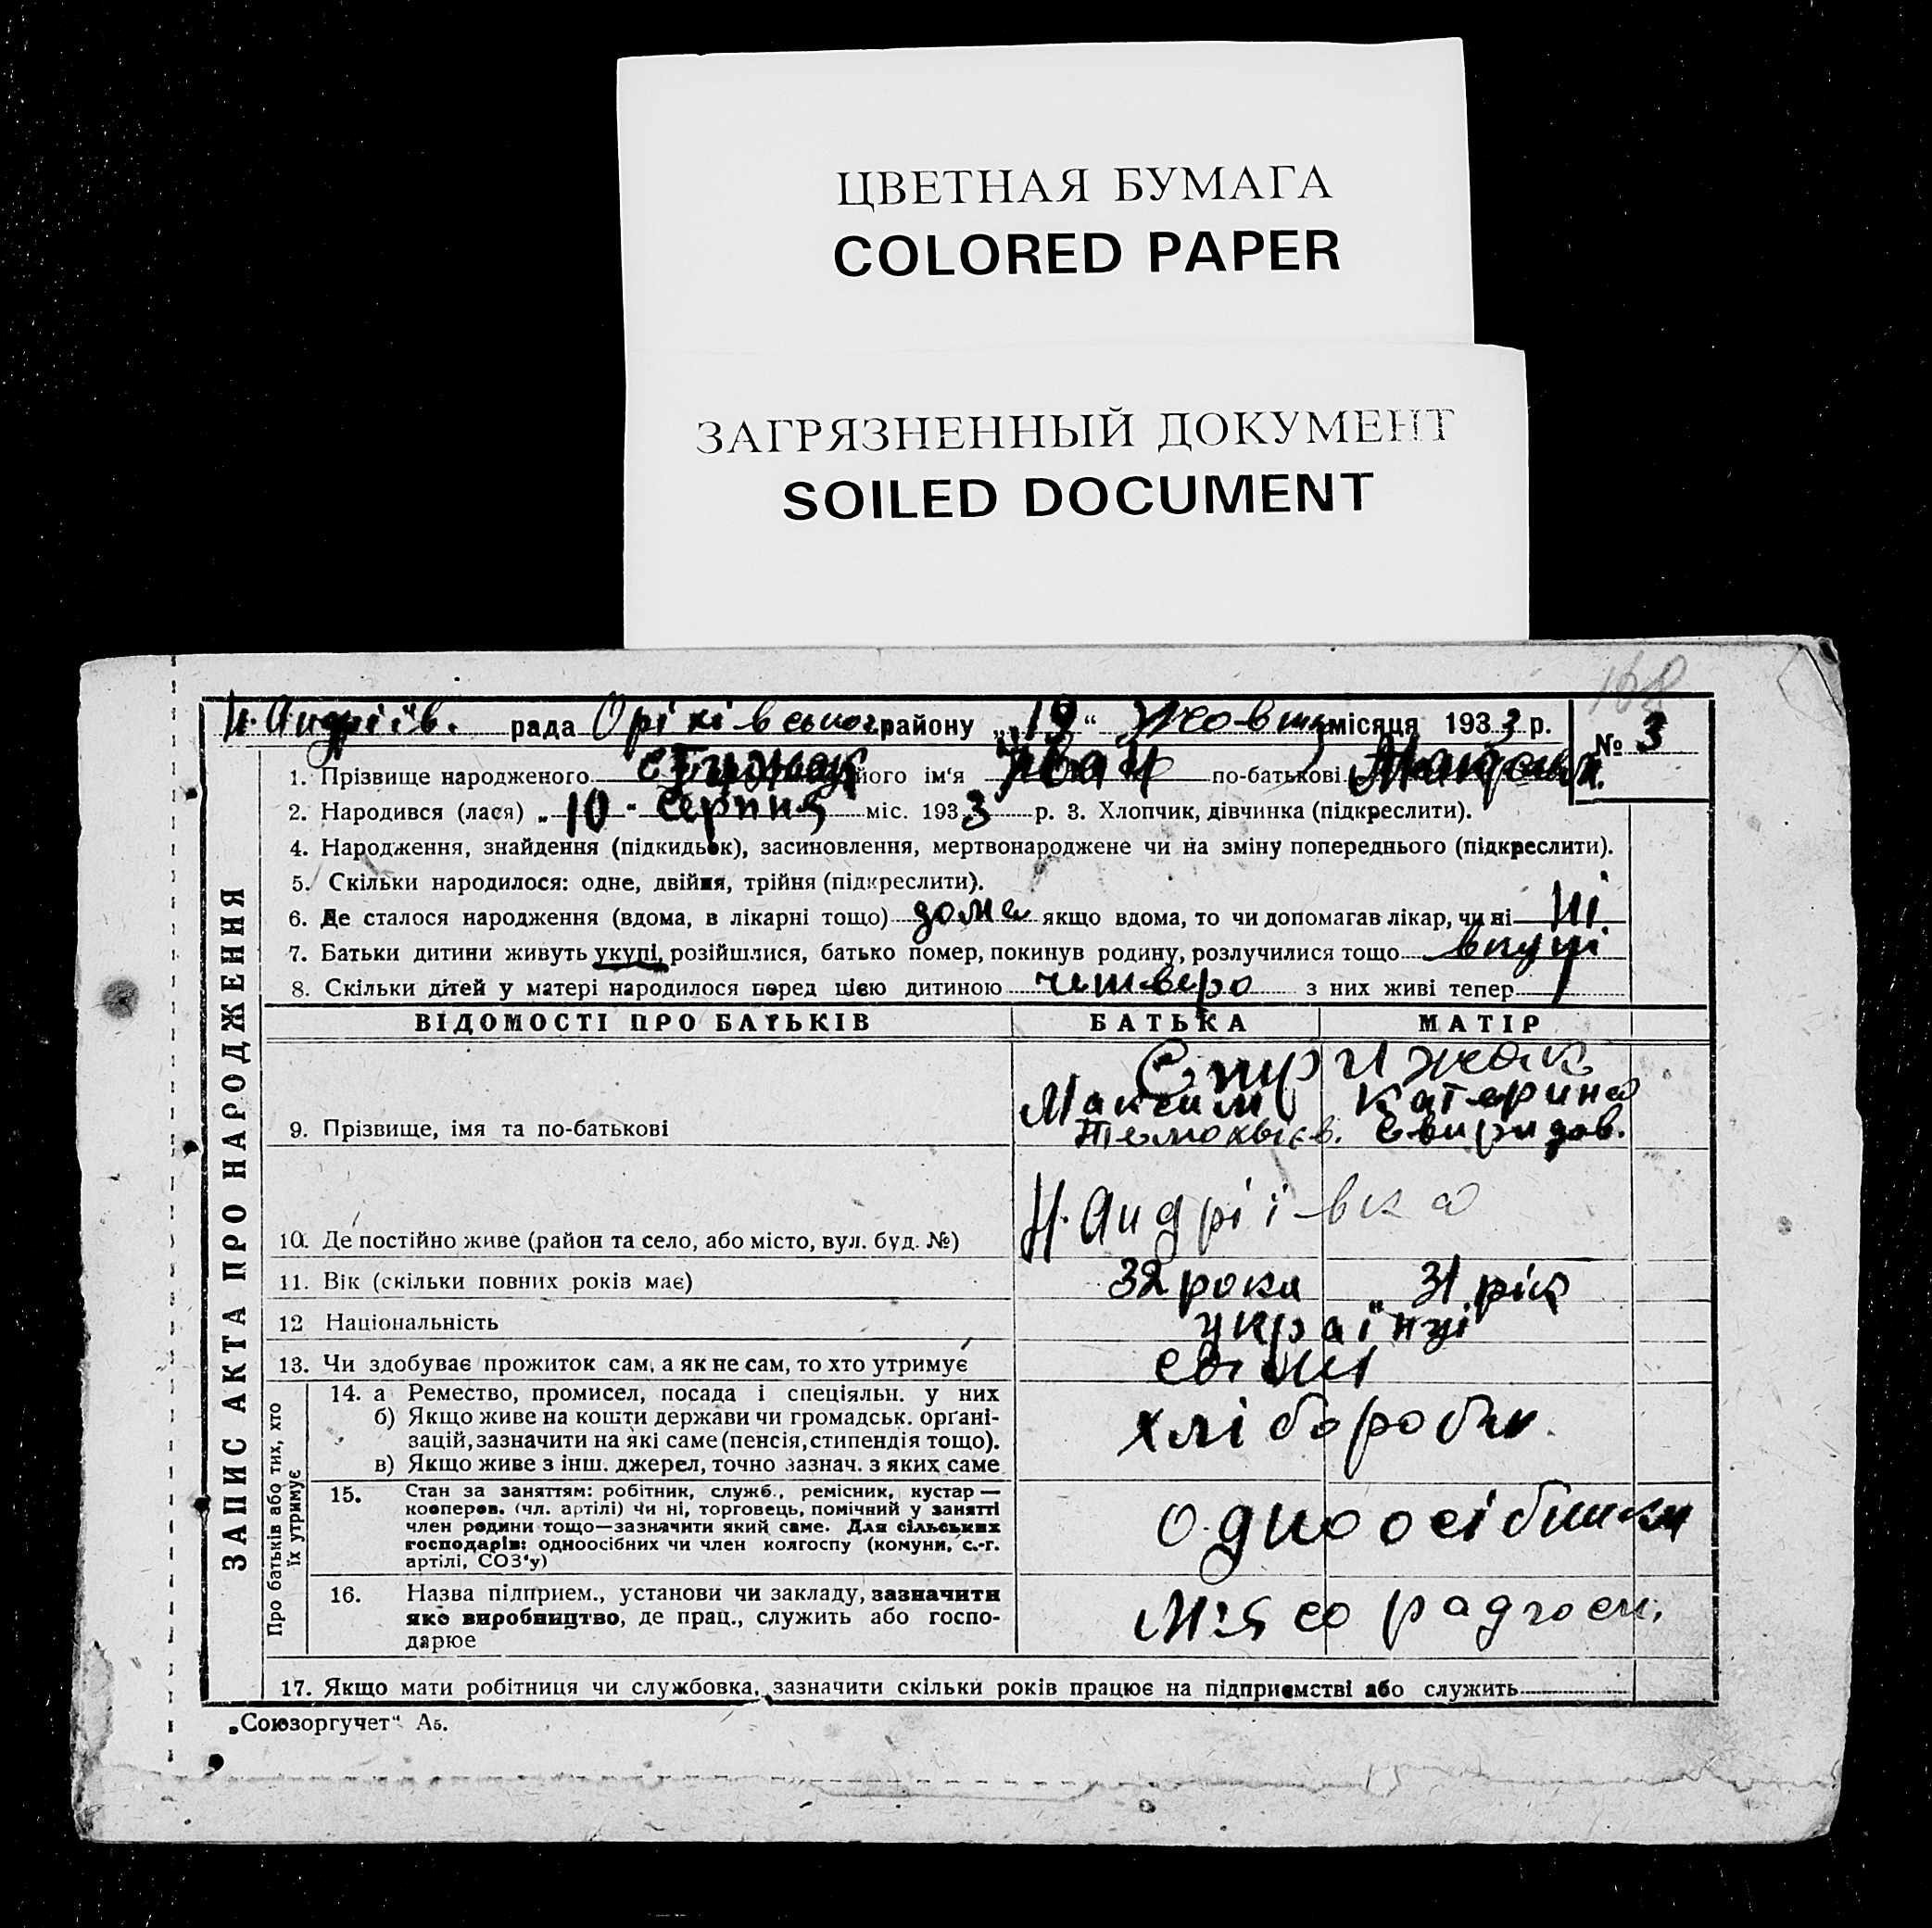 ЦВЕТНАЯ БУМАГА
COLORED PAPER
ЗАГРЯЗНЕННЫЙ ДОКУМЕНТ
SOILED DOCUMENT
168
Н. Андріїв. рада Оріхівського району „19“ Жовтня місяця 1933 р. № 3
1. Прізвище народженого його ім‘я Іван по-батькові
2. Народився (лася) „10 - серпня міс. 1933 р. 3. Хлопчик, дівчинка (підкреслити).
4. Народження, знайдення (підкидьок), засиновлення, мертвонароджене чи на зміну попереднього (підкреслити).
5. Скільки народилося: одне, двійня, трійня (підкреслити).
6. Де сталося народження (вдома, в лікарні тощо) дома якщо вдома, то чи допомагав лікар, чи ні ні
7. Батьки дитини живуть укупі, розійшлися, батько помер, покинув родину, розлучилися тощо вкупі
8. Скільки дітей у матері народилося перед цією дитиною четверо з них живі тепер 1
ВІДОМОСТІ ПРО БАТЬКІВ БАТЬКА МАТІР
Стрижак
Максим Катерина
9. Прізвище, імя та по-батькові Свиридов.
Н. Андріївка
10. Де постійно живе (район та село, або місто, вул. буд. №)
11. Вік (скільки повних років має) 32 роки 31 рік
12 Національність українці
13. Чи здобуває прожиток сам, а як не сам, то хто утримує самі
14. а Ремество, промисел, посада і спеціяльн. у них
б) Якщо живе на кошти держави чи громадськ. органі-
зацій, зазначити на які саме (пенсія, стипендія тощо). хлібороби
в) Якщо живе з інш. джерел, точно зазнач. з яких саме
15. Стан за заняттям: робітник, служб., ремісник, кустар —
кооперов. (чл. артілі) Чи ні, торговець, помічний у занятті
член родини тощо—зазначити який саме. Для сільських одноосібники
господарів: одноосібних чи член колгоспу (комуни, с.-г.
артілі, СОЗ‘у)
16. Назва підприєм., установи чи закладу, зазначити
яке виробництво, де прац., служить або госпо-
дарює
17. Якщо мати робітниця чи службовка, зазначити скільки років працює на підприємстві або служить
„Союзоргучет“ А5.
ЗАПИС АКТА ПРО НАРОДЖЕННЯ
Про батьків або тих, хто
їх утримує